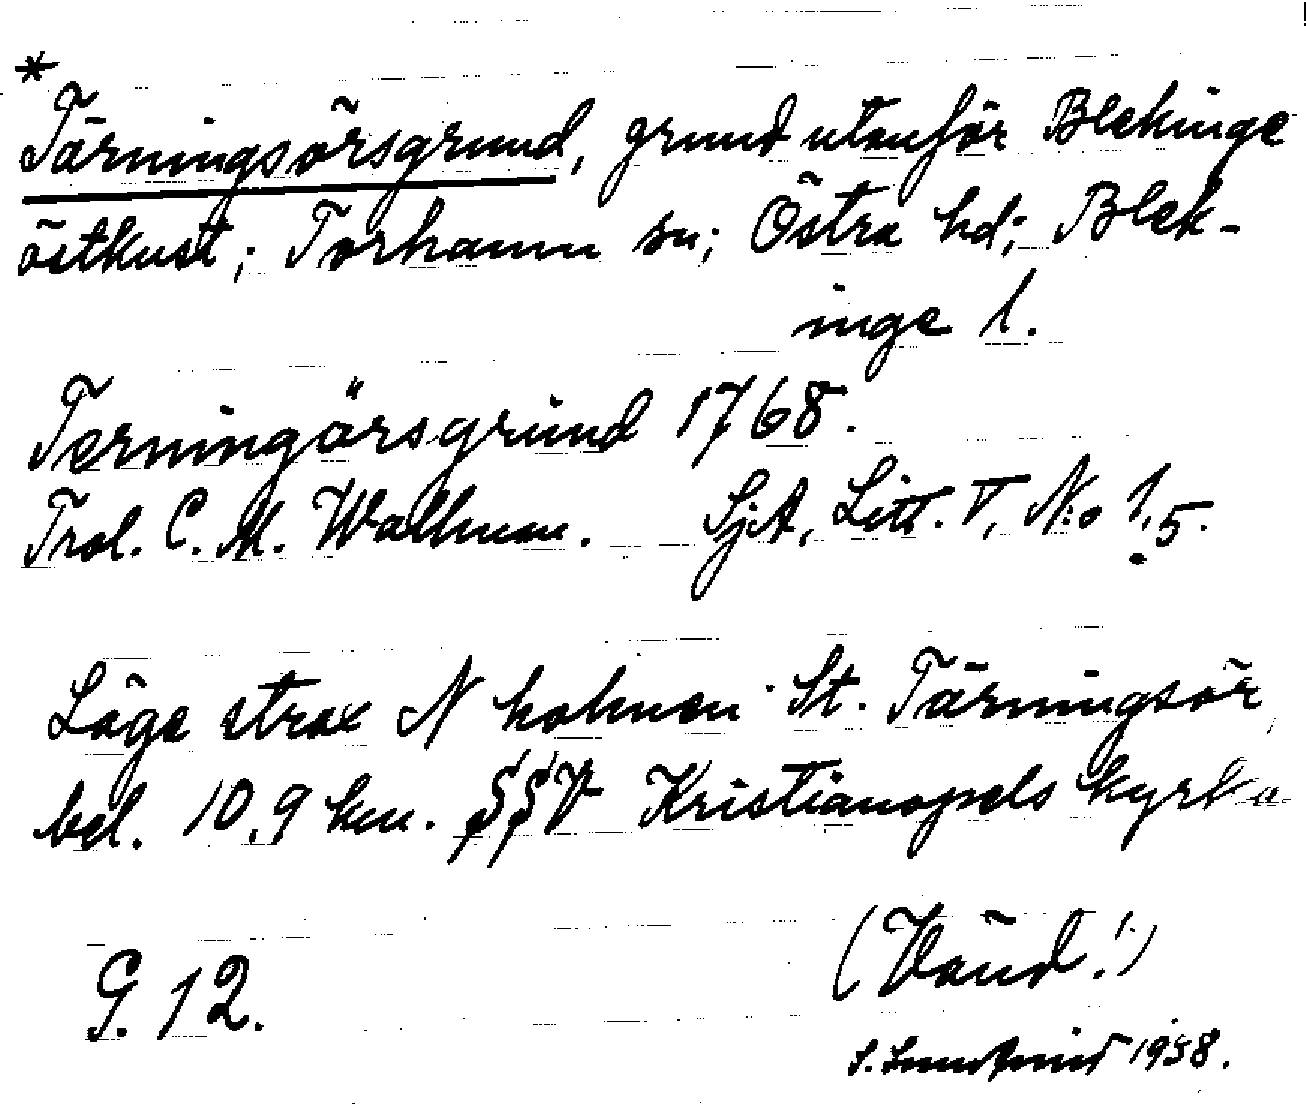 *
Tärningsörsgrund, grund utanför Blekinge
östkust; Torhamn sn; Östra hd; Blek-
inge l.
Terningörsgrund 1768.
Trol. C. M. Wallman. SjA, Litt. V, N:o 1.5.
Läge strax N holmen St. Tärningsör,
bel. 10,9 km. SSV Kristianopels kyrka
G. 12.
(Vänd!)
S. 1958.